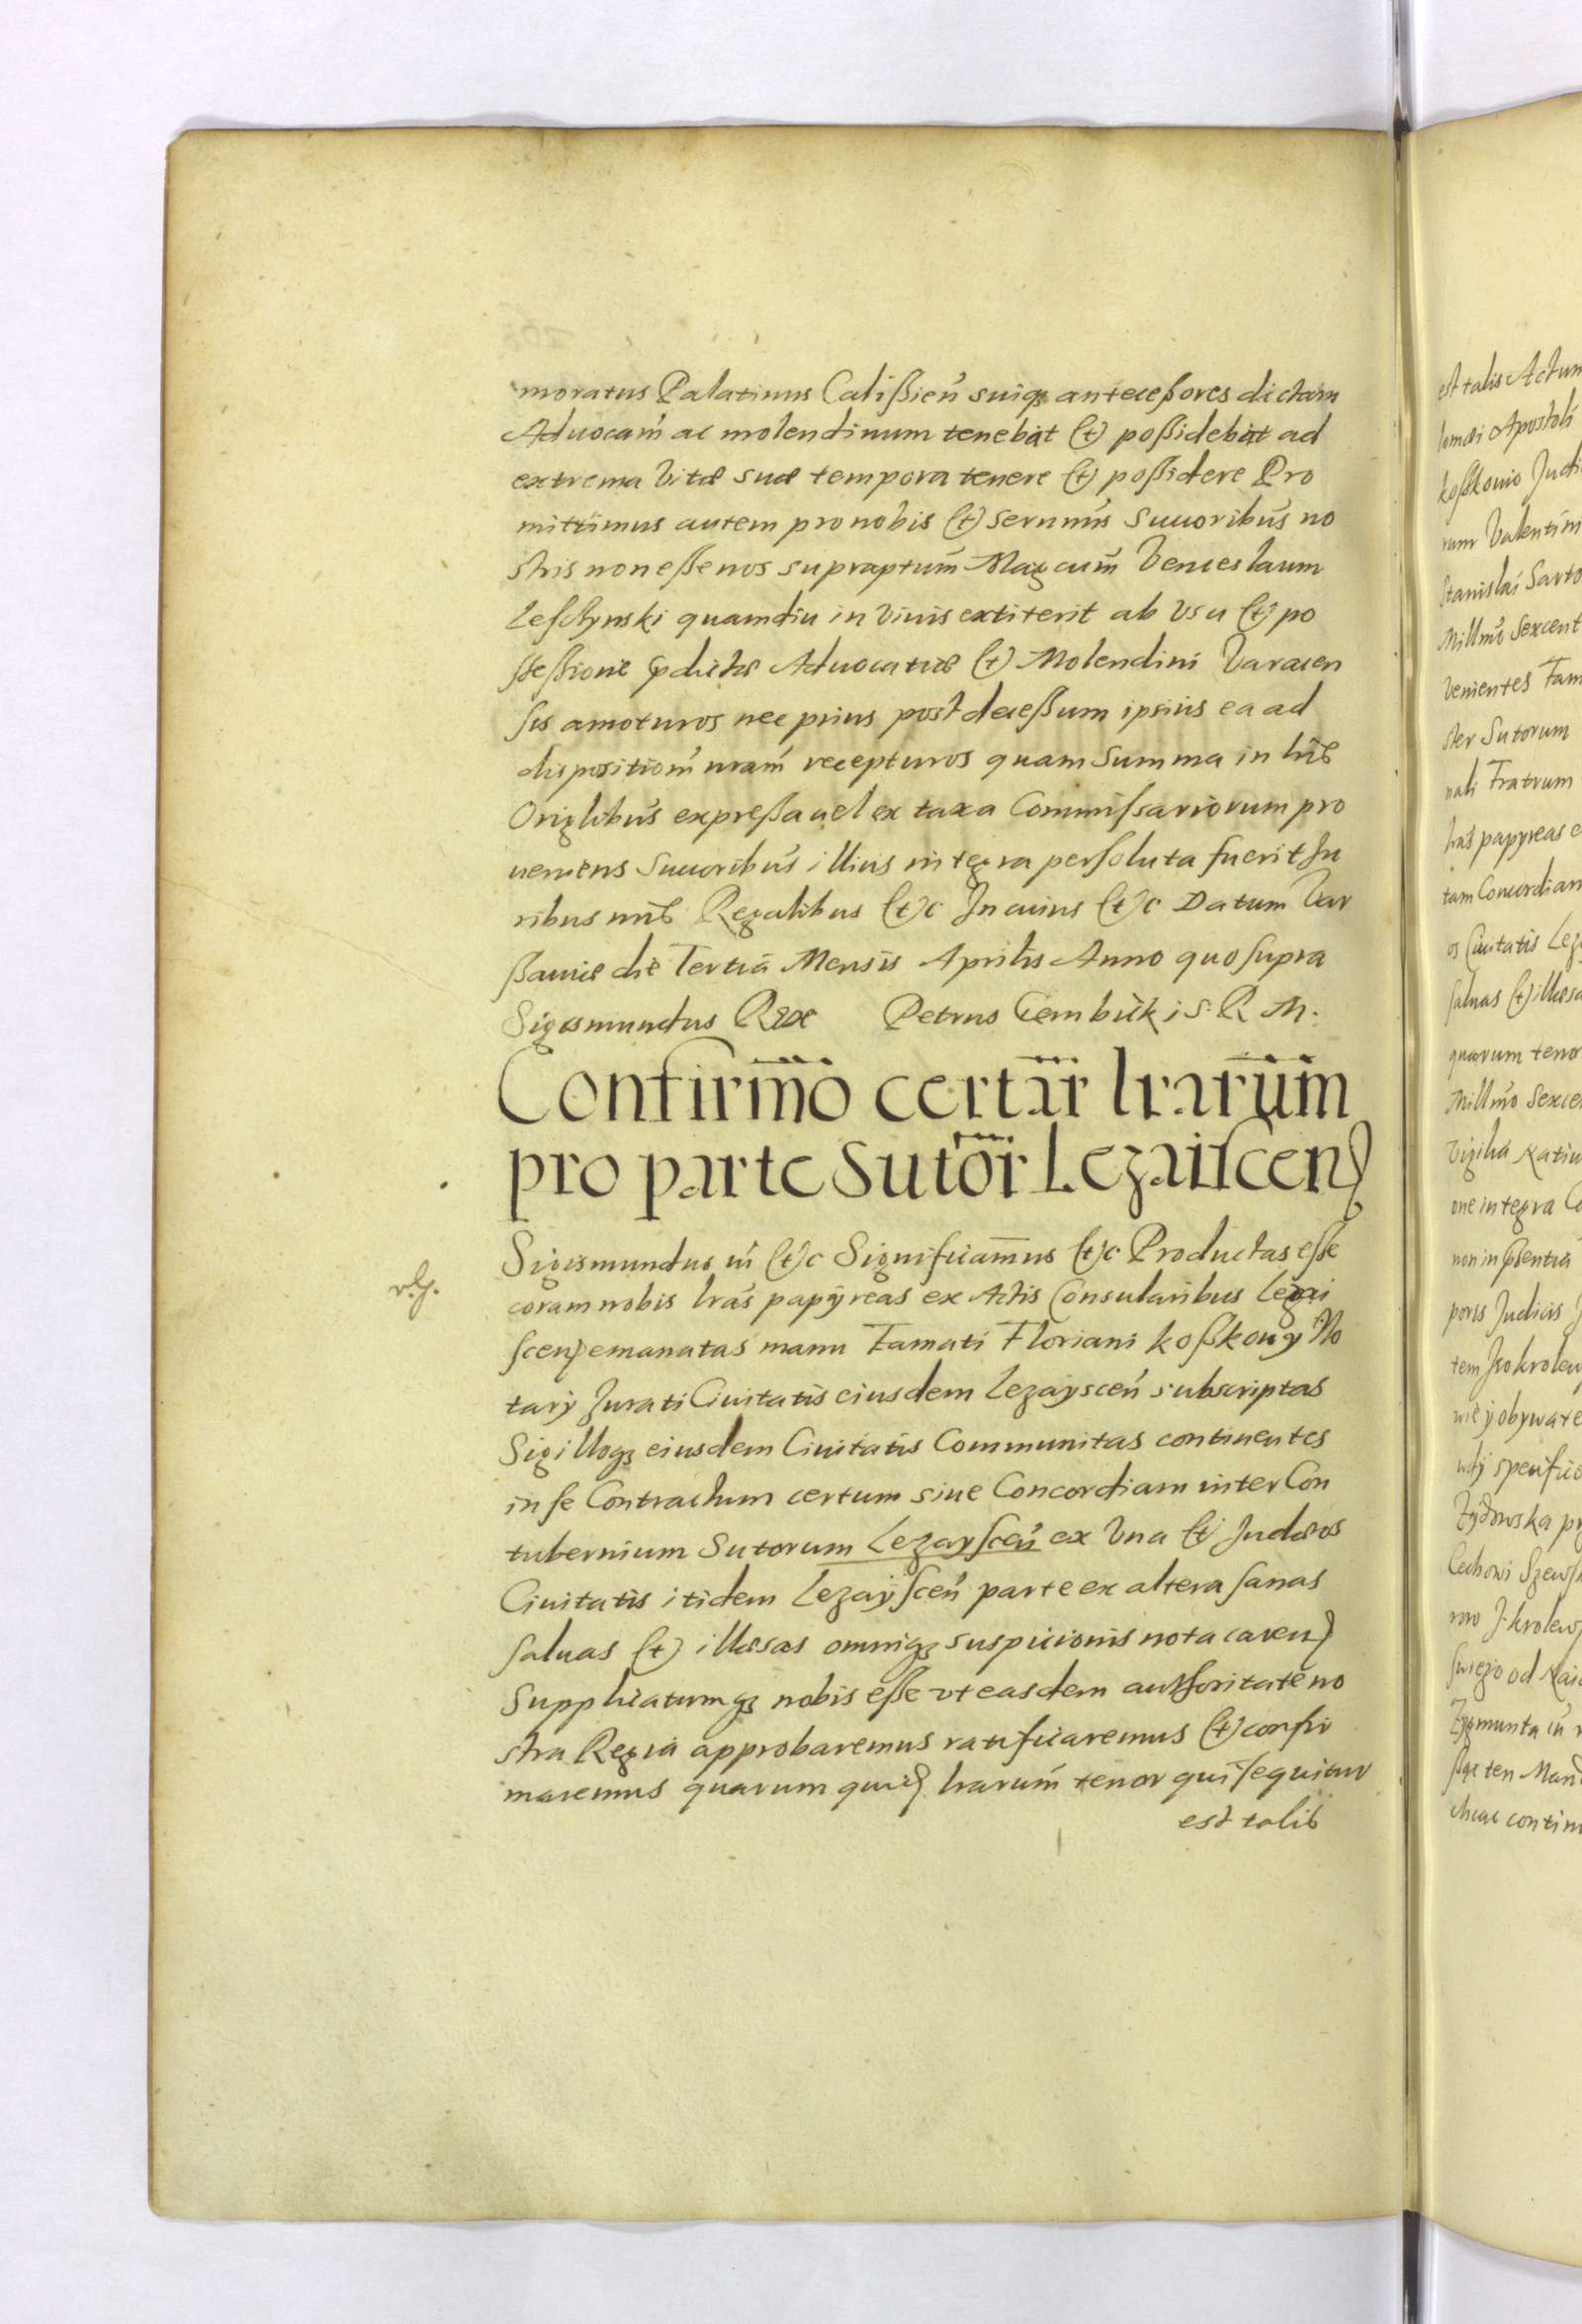 moratus Palatinus Calißień suiqȝ anteceßores dictam
Aduocam̃ ac molendinum tenebat (et) poßidebat ad
extrema Vitæ suæ tempora tenere (et) poßidere Pro
mittimus autem pro nobis (et) Sernm̃is Succoribũs no
stris non eße nos supraptum̃ Mag̃cum̃ Venceslaum
Lesctynski quamdiu in Viuis extiterit ab Vsu (et) po
ssessione p̃dictæ Aduocatiæ (et) Molendini Varcien
sis amoturos nec prius post deceßum ipsius ea ad
dispositiom̃ nram̃ recepturos quam Summa in lr̃is
Origlibũs expreßa uel ex taxa Commissariorum pro
ueniens Succoribũs illius integra persoluta fuerit Ju
ribus nr̃is Regalibus (et)c In cuius (et)c Datum Var
ßauiæ die Tertia Mensis Aprilis Anno quo supra
Sigismundus Rex Petrus Gembicki S. R. M.
Confirm̃o certar̃ lrarum̃
pro parte Sutor̃ Lezaiscen̄
Sigismundus iii (et)c Significam̃us (et)c Productas esse
coram nobis lrãs papyreas ex Actis Consularibus Lezai
scen̄ emanatas manu Famati Floriani Koßkowy No
tarÿ Jurati Ciuitatis eiusdem Lezayscen̄ subscriptas
Sigilloqȝ eiusdem Ciuitatis Communitas continentes
in se Contractum certum siue Concordiam inter Con
tubernium Sutorum Lezayscen̄ ex Vna (et) Judæos
Ciuitatis itidem Lezaÿscen̄ parte ex altera sanas
saluas (et) illæsas omniqȝ suspicionis nota caren̄
Supplicatumqȝ nobis eße vt easdem authoritate no
stra Regia approbaremus ratificaremus (et) confir
maremus quarum quid̃ lrarum̃ tenor qui sequitur
est talis
est talis Actum
Apostoli
Valentini
Stanislai Sarto
Millmõ Sexcent
Venientes Fam
ster Sutorum
nali Fratrum
lrãs papyreas e
tam Concordiam
os Ciuitatis Lez
saluas (et) illæsa
quarum tenor
Millmõ Sexce
Vigilia
one integra Co
non in p̃sentia
poris Judicis J
nie y obywate
wsty specific
Zydowska pr
Cechowi Szews
Zygmunta iii
contin